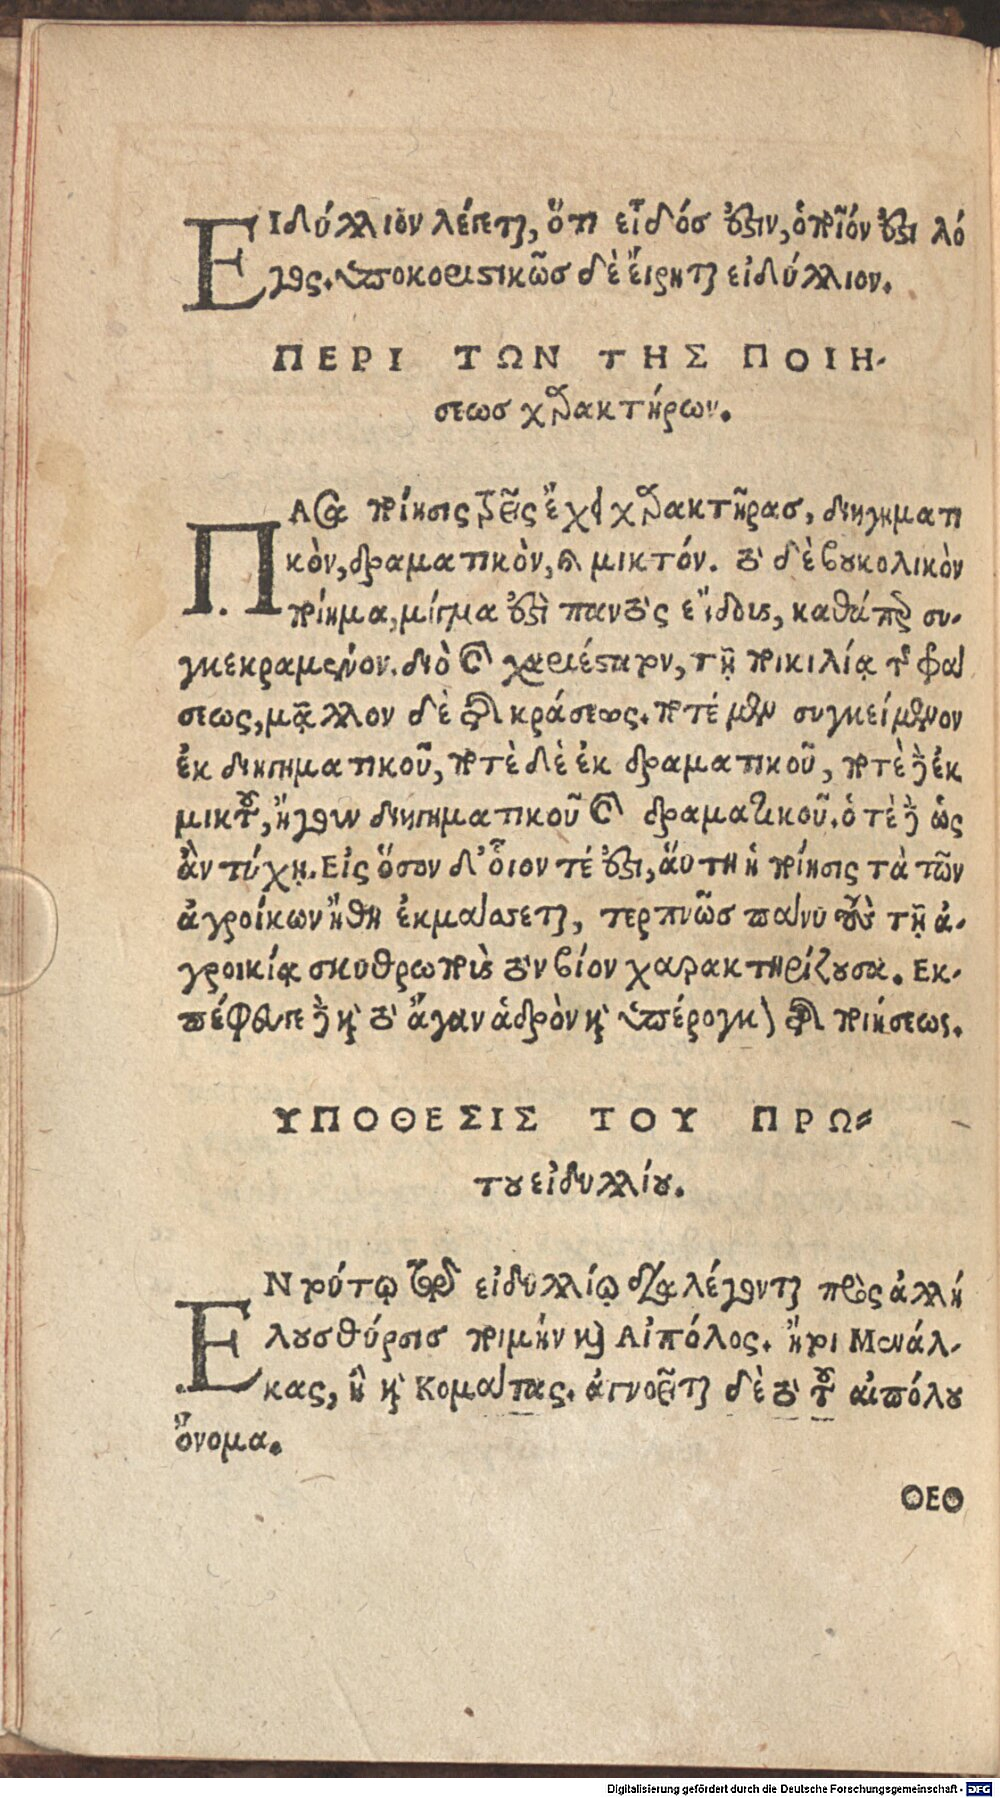 Ειδύλλιον λέγεται, ὅτι εἶδός ἐστιν, ὁποῖόν ἐστι λό
γος. ὑποκοριστικῶσ δὲ ἔιρηται ειδύλλιον.
ΠΕΡΙ ΤΩΝ ΤΗΣ ΠΟΙΗ-
σεωσ χαρακτήρων.
ΠΑσα ποίησις τρεῖς ἔχει χαρακτῆρασ, διηγηματι
κὸν, δραματικὸν, καὶ μικτόν. τὸ δὲ βουκολικὸν
ποίημα, μίγμα ἐστὶ παντὸς εἴδους, καθάπερ συ-
γκεκραμένον. διὸ καὶ χαριέστερον, τῇ ποικιλίᾳ τῆς
σεως, μᾶλλον δὲ τῆς κράσεως. ποτέ μὲν συγκείμενον
ἐκ διηγηματικοῦ, ποτὲ δὲ ἐκ δραματικοῦ, ποτὲ δὲ ἐκ
μικτοῦ, ἤγουν διηγηματικοῦ καὶ δραματικοῦ. ὁτὲ δὲ ὡς
ἂν τύχῃ. Εἰς ὅσον δ' οἷον τέ ἐστι, ἅυτη ἡ ποίησις τὰ τῶν
ἀγροίκων ἤθη ἐκμάσσεται, τερπνῶσ πάνυ τοὺς τῇ ἀ-
γροικίᾳ σκυθρωποὺς τὸν βίον χαρακτηρίζουσα. Εκ-
πέφευγε δὲ καὶ τὸ ἄγαν ἁδρὸν καὶ ὑπέρογκον τῆς ποιήσεως.
ΥΠΟΘΕΣΙΣ ΤΟΥ ΠΡΩ-
του ειδυλλίου.
ΕΝ τούτῳ τῷ εἰδυλλίῳ διαλέγονται πρὸς ἀλλή
λουσ θύρσισ ποιμὴν καὶ Αἰπόλος. ἤτοι Μενάλ-
κας, ἢ καὶ Κομάτας. ἀγνοεῖται δὲ τὸ τοῦ αιπόλου
ὄνομα.
ΘΕΟ
Digitalisierung gefördert durch die Deutsche Forschungsgemeinschaft - DFG